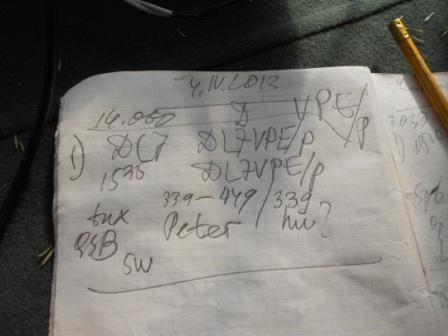 4.IV.2013
14.060 D VPE/
/p
1) DL7 DL7VPE/p
1536 DL7VPE/p
339-449/339
tnx Peter hw?
QSB
sw
7030